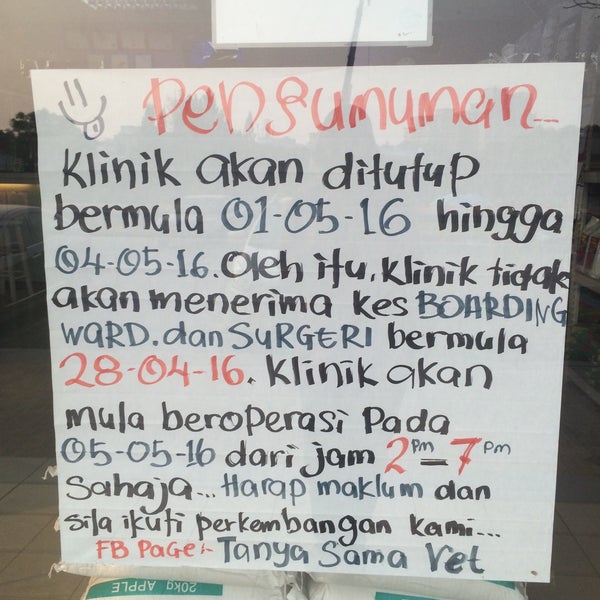 Pengumuman...
Klinik akan ditutup
bermula 01-05-16 hingga
04-05-16. Oleh itu, klinik tidak
akan menerima kes BOARDING
WARD, dan SURGERI bermula
28-04-16. Klinik akan
mula beroperasi Pada
05-05-16 dari jam 2pm - 7pm
Sahaja... Harap maklum dan
sila ikuti perkembangan kami...
FB Page:- Tanya Sama Vet
20kg APPLE